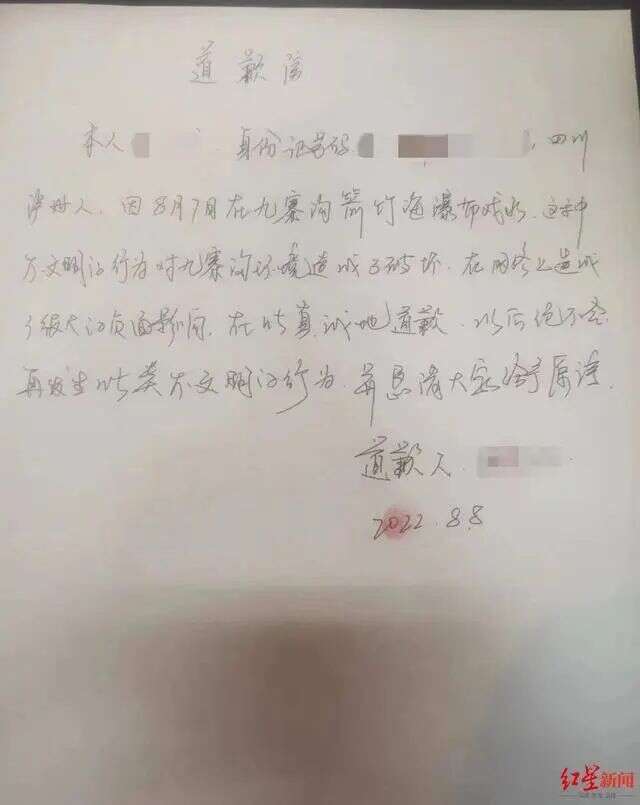 道歉信
本人 身份证号码 , 四川
泸州人, 因8月7日在九寨沟箭竹海瀑布戏水, 这种
不文明的行为对九寨沟环境造成了破坏. 在网络上造成
了很大的负面影响, 在此真诚地道歉. 以后绝不会
再发生此类不文明的行为. 并恳请大家给予原谅.
道歉人.
2022.8.8
红星新闻